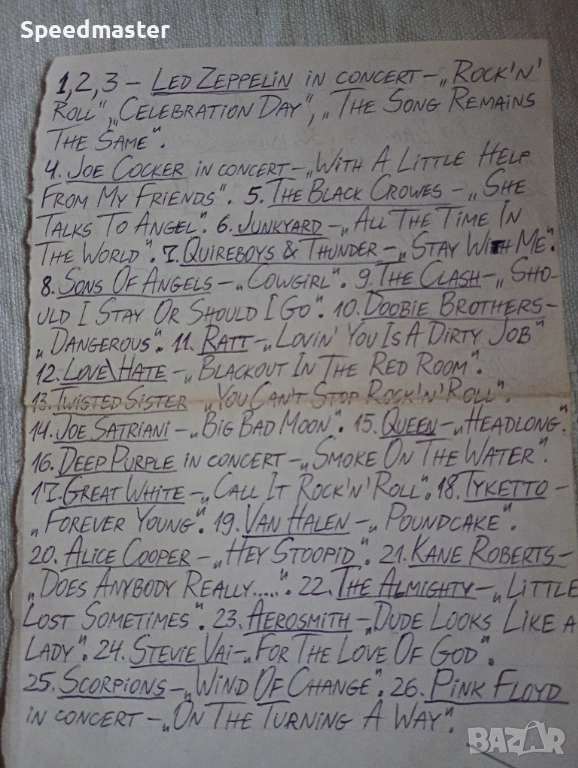 Speedmaster
1,2,3 – LED ZEPPELIN IN CONCERT – „ROCK'N'
ROLL", „CELEBRATION DAY", „THE SONG REMAINS
THE SAME".
4. JOE COCKER IN CONCERT – „WITH A LITTLE HELP
FROM MY FRIENDS". 5. THE BLACK CROWES – „SHE
TALKS TO ANGEL". 6. JUNKYARD – „ALL THE TIME IN
THE WORLD". 7. QUIREBOYS & THUNDER – „STAY WITH ME".
8. SONS OF ANGELS – „COWGIRL". 9. THE CLASH – „SHO-
ULD I STAY OR SHOULD I GO". 10. DOOBIE BROTHERS –
„DANGEROUS". 11. RATT – „LOVIN' YOU IS A DIRTY JOB"
12. LOVE\HATE – „BLACKOUT IN THE RED ROOM".
13. TWISTED SISTER „YOU CAN'T STOP ROCK'N'ROLL".
14. JOE SATRIANI – „BIG BAD MOON". 15. QUEEN – „HEADLONG".
16. DEEP PURPLE IN CONCERT – „SMOKE ON THE WATER".
17. GREAT WHITE – „CALL IT ROCK'N'ROLL". 18. TYKETTO –
„FOREVER YOUNG". 19. VAN HALEN – „POUNDCAKE".
20. ALICE COOPER – „HEY STOOPID". 21. KANE ROBERTS –
„DOES ANYBODY REALLY.....". 22. THE ALMIGHTY – „LITTLE
LOST SOMETIMES". 23. AEROSMITH – „DUDE LOOKS LIKE A
LADY". 24. STEVIE VAI – „FOR THE LOVE OF GOD".
25. SCORPIONS – „WIND OF CHANGE". 26. PINK FLOYD
IN CONCERT – „ON THE TURNING A WAY".
BAZAR